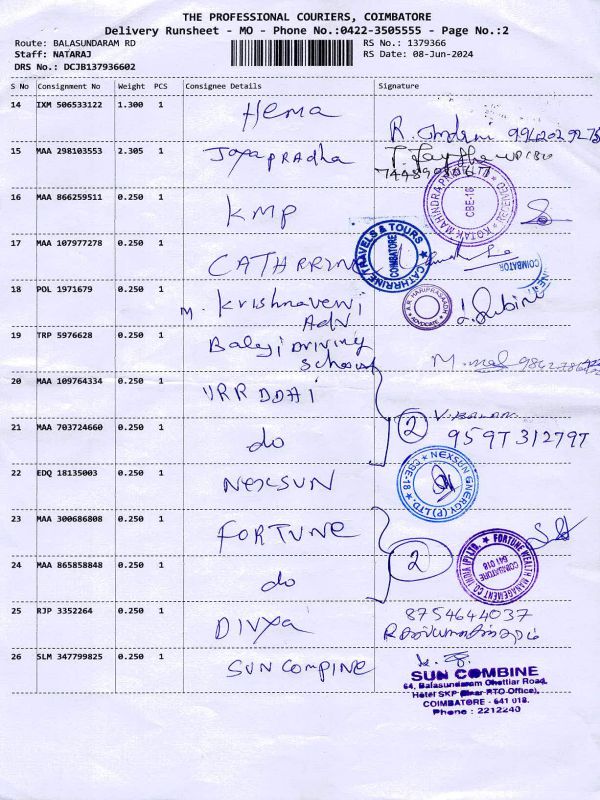 THE PROFESSIONAL COURIERS, COIMBATORE
Delivery Runsheet - MO - Phone No.:0422-3505555 - Page No.:2
Route: BALASUNDARAM RD
Staff: NATARAJ
DRS No.: DCJB137936602
RS No.: 1379366
RS Date: 08-Jun-2024
S No Consignment No Weight PCS Consignee Details Signature
14 IXM 506533122 1.300 1 Hema
R.
15 MAA 298103553 2.305 1 JayaPRadha
16 MAA 866259511 0.250 1 KMP
KOTAK MAHINDRA
CBE-18
17 MAA 107977278 0.250 1 CATHRRINE
CATHRRINE TRAVELS & TOURS
COIMBATORE
COIMBATOR
18 POL 1971679 0.250 1 M. Krishnaveni
Adv
HARIPRASADH
ADVOCATE
19 TRP 5976628 0.250 1 Balaji Driving
School
20 MAA 109764334 0.250 1 URR DDAI
21 MAA 703724660 0.250 1 do
2
9597312797
22 EDQ 18135003 0.250 1 NEXSUN
NEXSUN ENERGY (P) LTD.
CBE-18
23 MAA 300686808 0.250 1 FORTUNE
24 MAA 865858848 0.250 1 do
2
FORTUNE WEALTH MANAGEMENT CO. INDIA (P) LTD.
COIMBATORE
641 018
25 RJP 3352264 0.250 1 DIVya
8754644037
26 SLM 347799825 0.250 1 SUN COMPINE
SUN COMBINE
64, Balasundaram Chettiar Road,
Hotel SKP (Near RTO Office),
COIMBATORE - 641 018.
Phone : 2212240